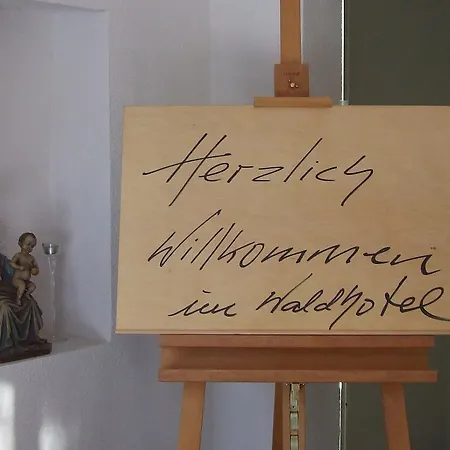 Herzlich
Willkommen
im Waldhotel